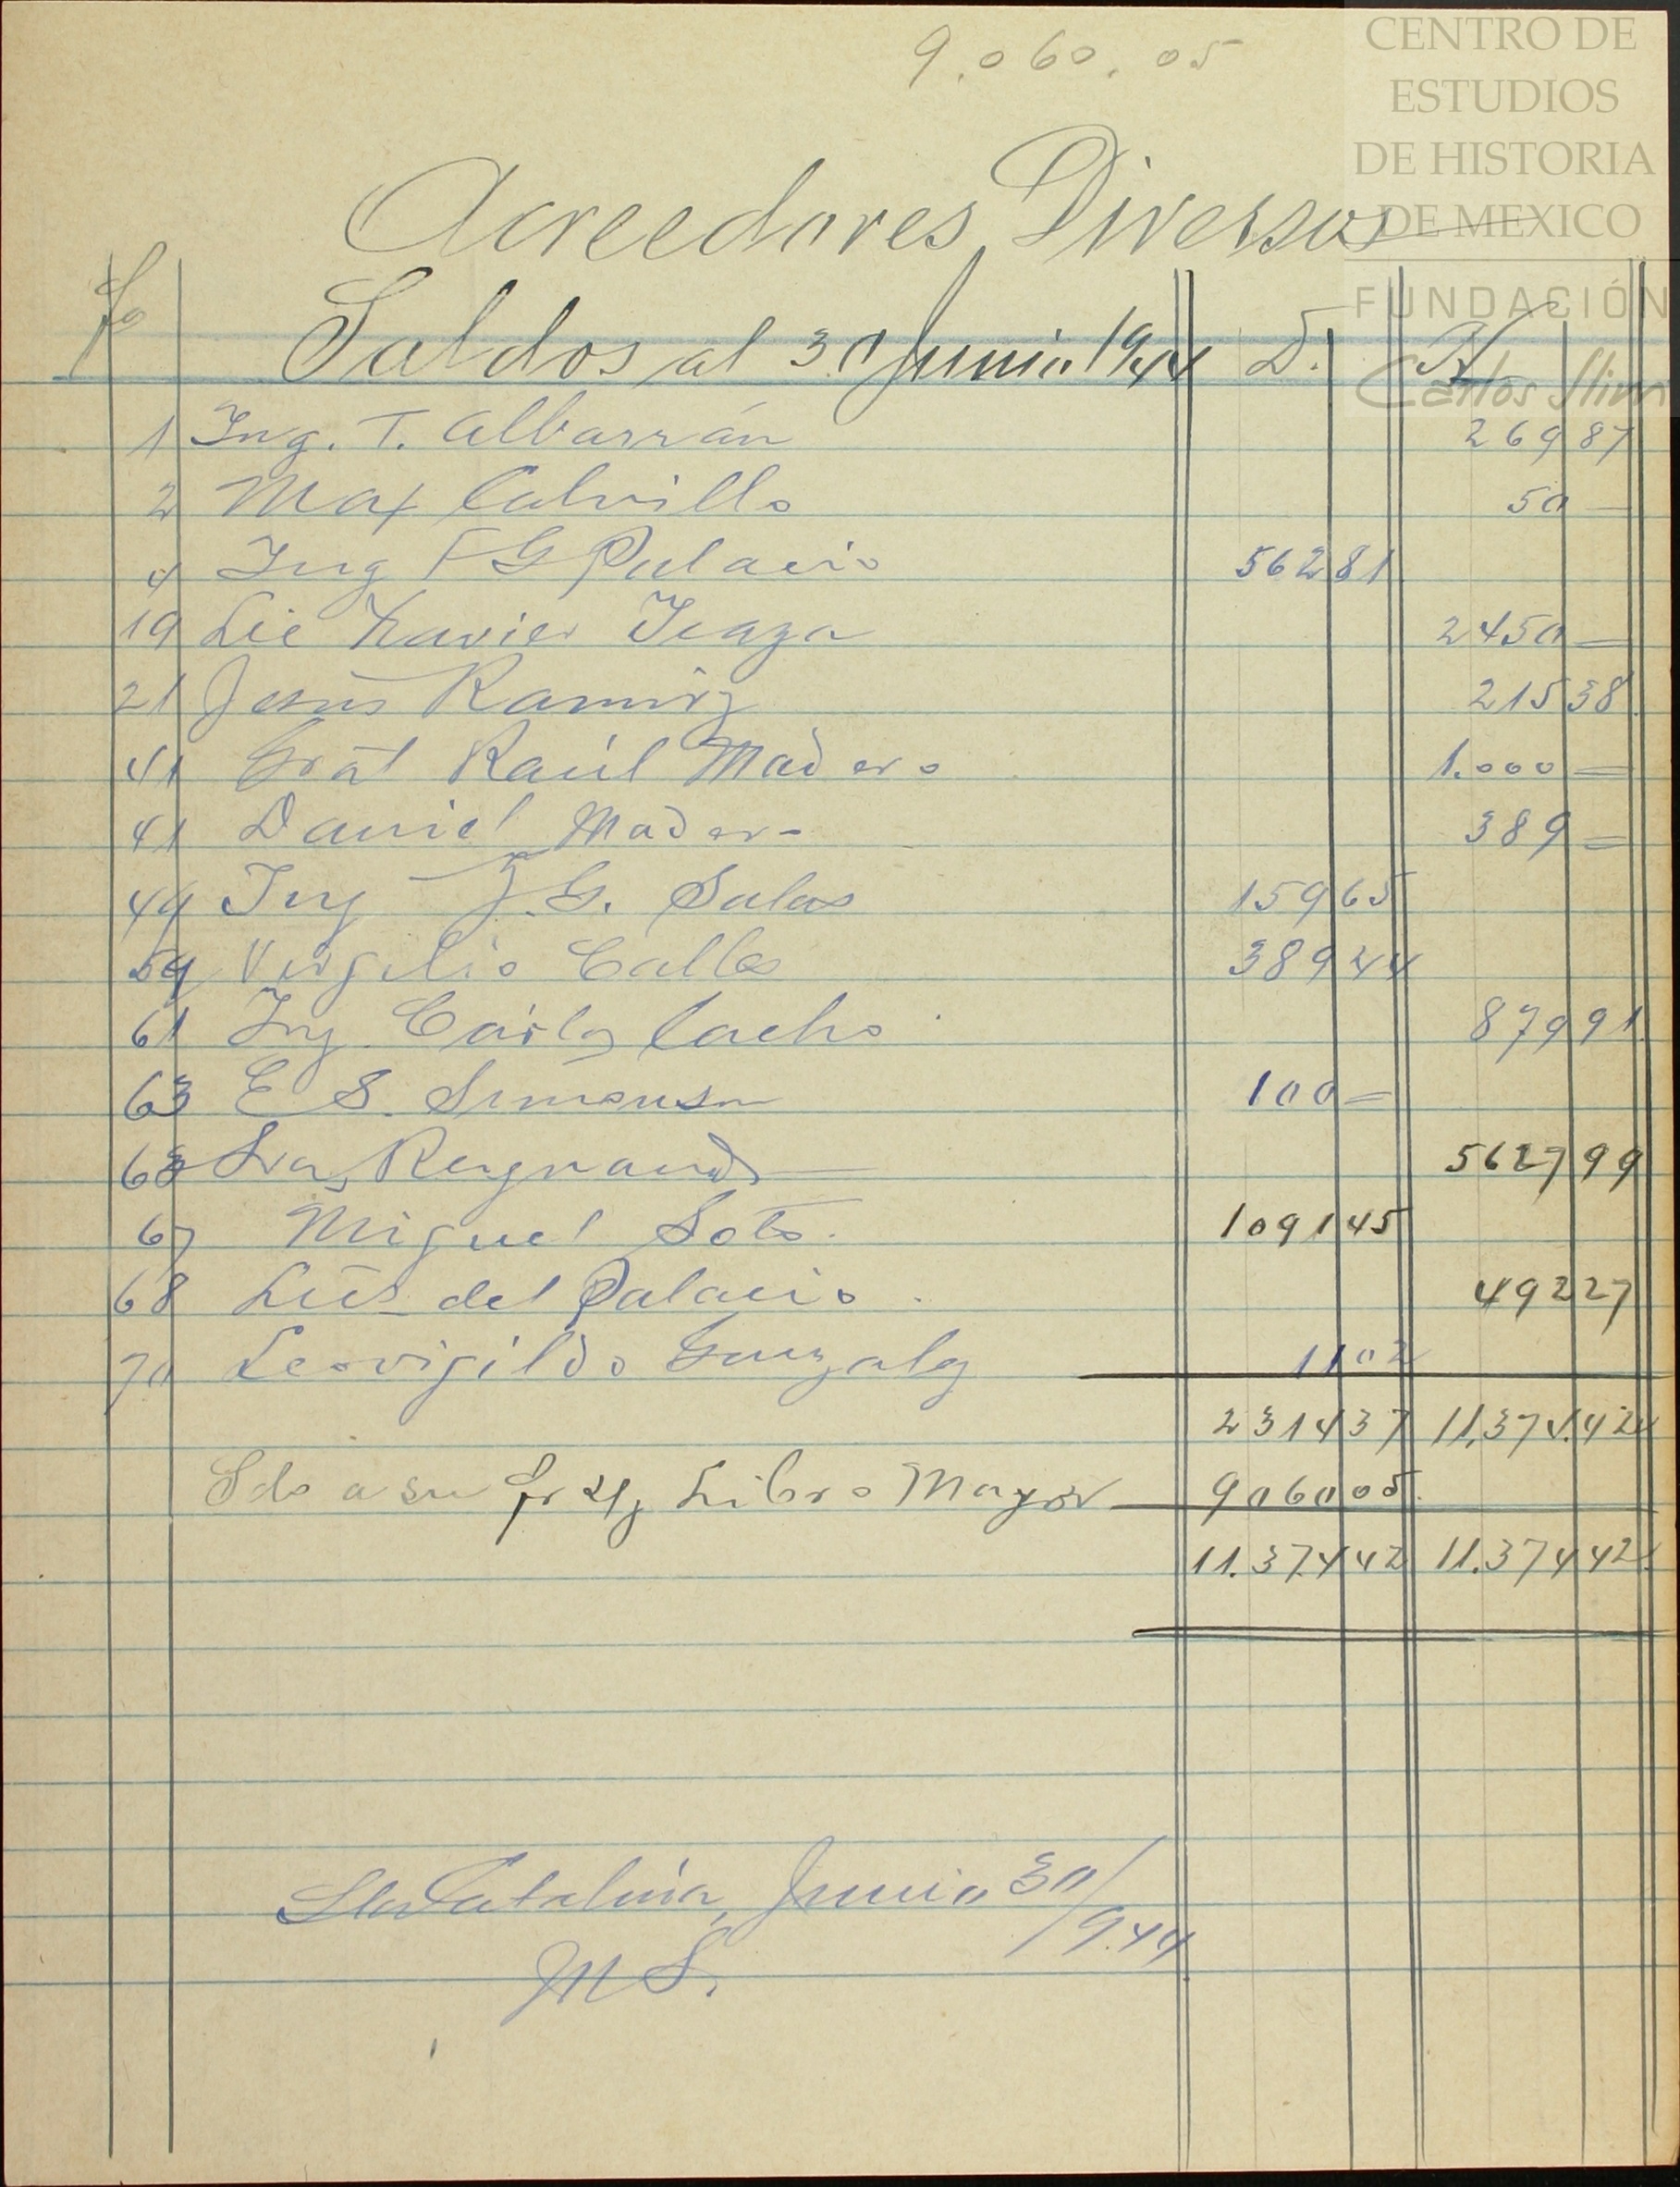 9.060.05
CENTRO DE
ESTUDIOS
DE HISTORIA
DE MEXICO
FUNDACIÓN
Carlos Slim
Acreedores Diversos
Fo Saldos al 30 Junio 1944 D. H
1 Ing. T. Albarrán 269 87
2 Max Calvillo 50 —
4 Ing F G Palacio 562 81
19 Lic Xavier Icaza 2450 —
21 Jesús Ramírz 215 38
41 Gral Raúl Madero 1.000 —
41 Daniel Madero 389 —
49 Ing J. G. Salas 159 65
59 Virgilio Calles 389 44
61 Ing. Cárlos Cacho 879 91
63 E S. Simonsen 100 —
63 Sra, Reygnaud 5627 99
67 Miguel Soto. 1091 45
68 Luis del Palacio. 492 27
70 Leovigildo Gonzalez 11 02
2314 37 11,374.42
Sdo a su Libro Mayor 9060 05
11.374 42 11.374 42
Sta Catalina, Junio 30/944
M S.